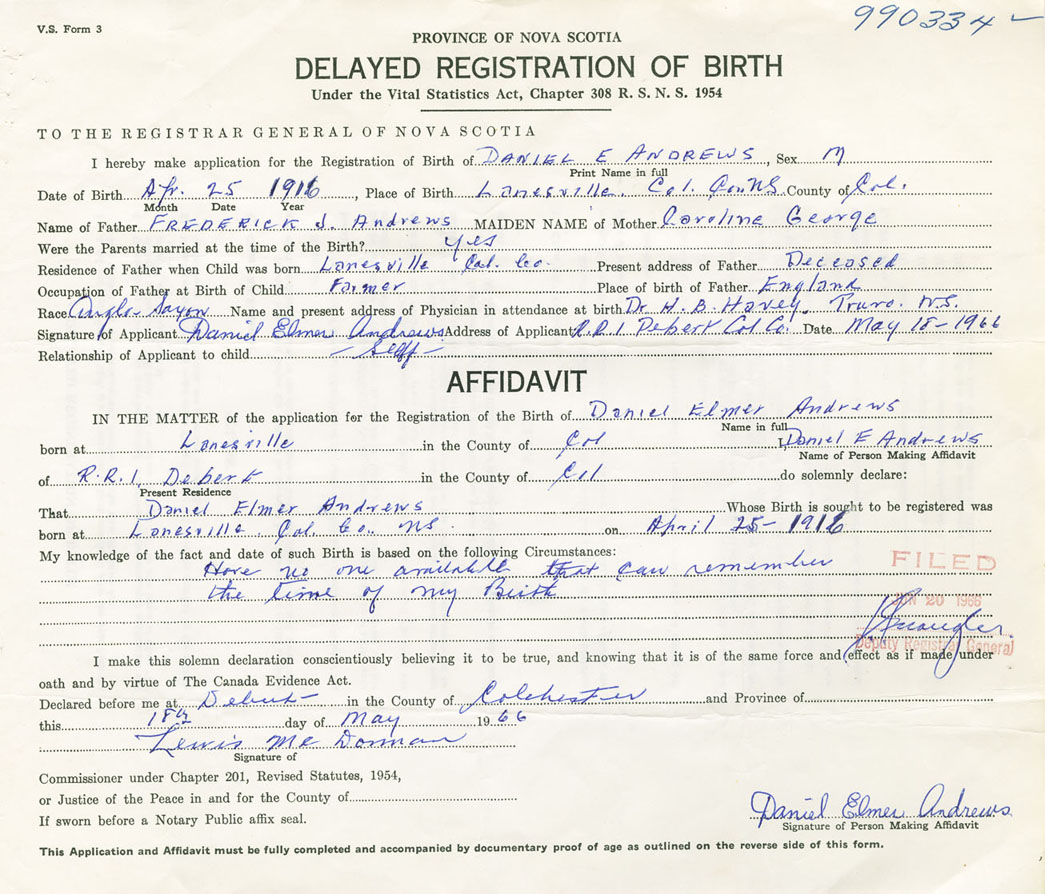 V.S. Form 3
990334
PROVINCE OF NOVA SCOTIA
DELAYED REGISTRATION OF BIRTH
Under the Vital Statistics Act, Chapter 308 R. S. N. S. 1954
TO THE REGISTRAR GENERAL OF NOVA SCOTIA
I hereby make application for the Registration of Birth of DANIEL E ANDREWS, Sex M
Print Name in full
Date of Birth Apr. 25 1916, Place of Birth Lanesville Col. Co. NS County of Col.
Month Date Year
Name of Father FREDERICK J. Andrews MAIDEN NAME of Mother Caroline George
Were the Parents married at the time of the Birth? yes
Residence of Father when Child was born Lanesville Col. Co. Present address of Father Deceased
Occupation of Father at Birth of Child Farmer Place of birth of Father England
Race Anglo-Saxon Name and present address of Physician in attendance at birth Dr. H. B. Havey, Truro. N.S.
Signature of Applicant Daniel Elmer Andrews Address of Applicant R.R.1 Debert Col Co. Date May 18-1966
Relationship of Applicant to child - Self -
AFFIDAVIT
IN THE MATTER of the application for the Registration of the Birth of Daniel Elmer Andrews
Name in full
born at Lanesville in the County of Col I, Daniel E Andrews
Name of Person Making Affidavit
of R.R.1, Debert in the County of Col do solemnly declare:
Present Residence
That Daniel Elmer Andrews Whose Birth is sought to be registered was
born at Lanesville Col. Co. NS. on April 25-1916
My knowledge of the fact and date of such Birth is based on the following Circumstances:
Have no one available that can remember
the time of my Birth
FILED
20 1966
Deputy Registrar General
I make this solemn declaration conscientiously believing it to be true, and knowing that it is of the same force and effect as if made under
oath and by virtue of The Canada Evidence Act.
Declared before me at Debert in the County of Colchester and Province of
this 18th day of May 1966
Lewis Mc Dorman
Signature of
Commissioner under Chapter 201, Revised Statutes, 1954,
or Justice of the Peace in and for the County of
If sworn before a Notary Public affix seal.
Daniel Elmer Andrews
Signature of Person Making Affidavit
This Application and Affidavit must be fully completed and accompanied by documentary proof of age as outlined on the reverse side of this form.